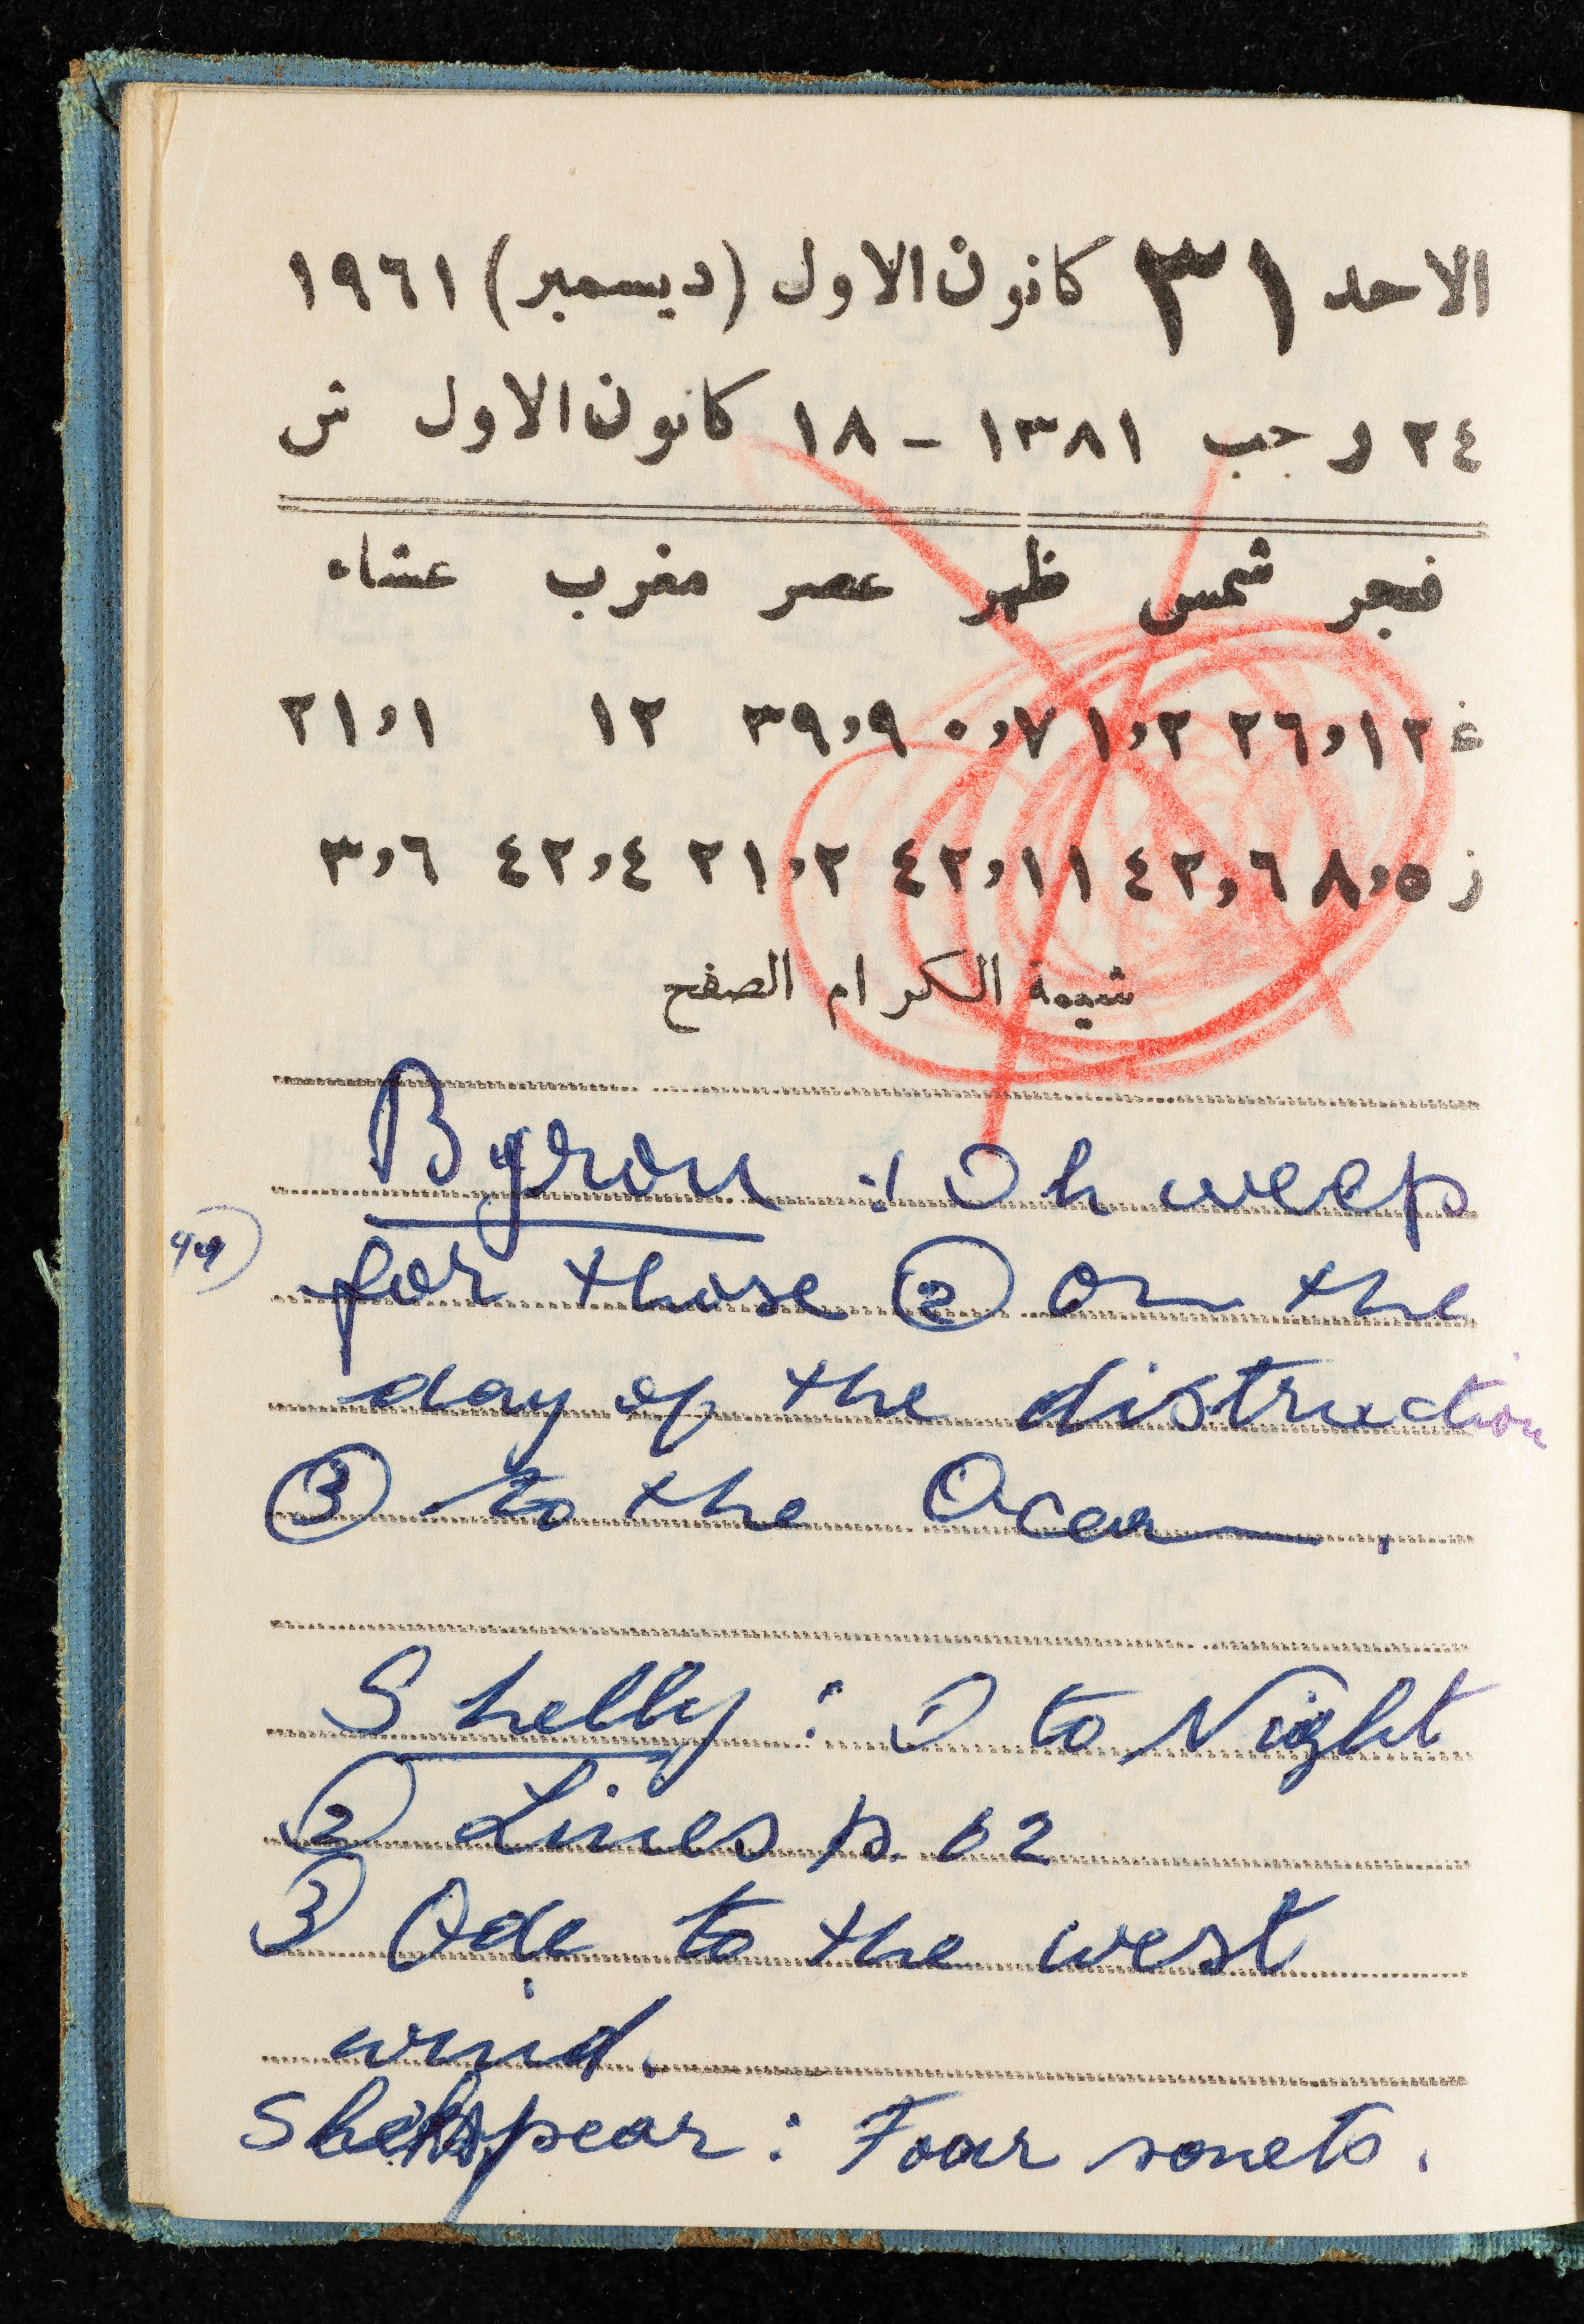 الاحد ٣١ كانون الاول (ديسمبر) ١٩٦١
٢٤ رجب ١٣٨١ - ١٨ كانون الاول ش
فجر شمس ظهر عصر مغرب عشاء
غ ٢٦,١٢ ١,٢ ٠,٧ ٣٩,٩ ١٢ ٢١,١
ز ٨,٥ ٤٢,٦ ٤٢,١١ ٢١,٢ ٤٢,٤ ٣,٦
شيمة الكرام الصفح
Byron : 1 Oh weep
for those ② On the
day of the distruction
③ to the Ocean.
Shelly : 1 to Night
② Lines p. 62
③ Ode to the west
wind.
Shekspear : Foar sonets.